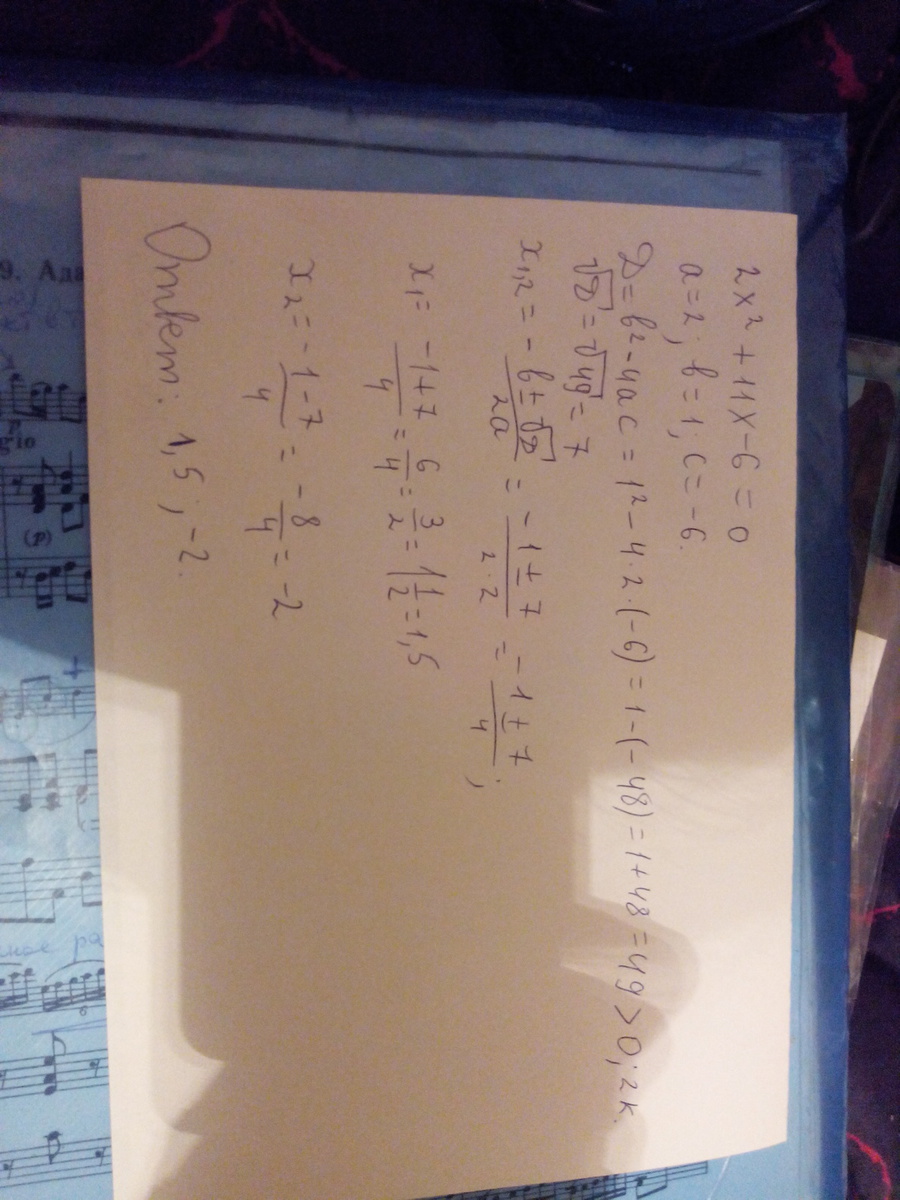 2x² + 11x - 6 = 0
a = 2; b = 1; c = -6.
D = b² - 4ac = 1² - 4·2·(-6) = 1 - (-48) = 1 + 48 = 49 > 0; 2 к.
√D = √49 = 7
x₁,₂ = (-b ± √D)/2a = (-1 ± 7)/2·2 = (-1 ± 7)/4;
x₁ = (-1 + 7)/4 = 6/4 = 3/2 = 1 1/2 = 1,5
x₂ = (-1 - 7)/4 = -8/4 = -2
Ответ: 1,5; -2.
9. Ада
gio
(p)